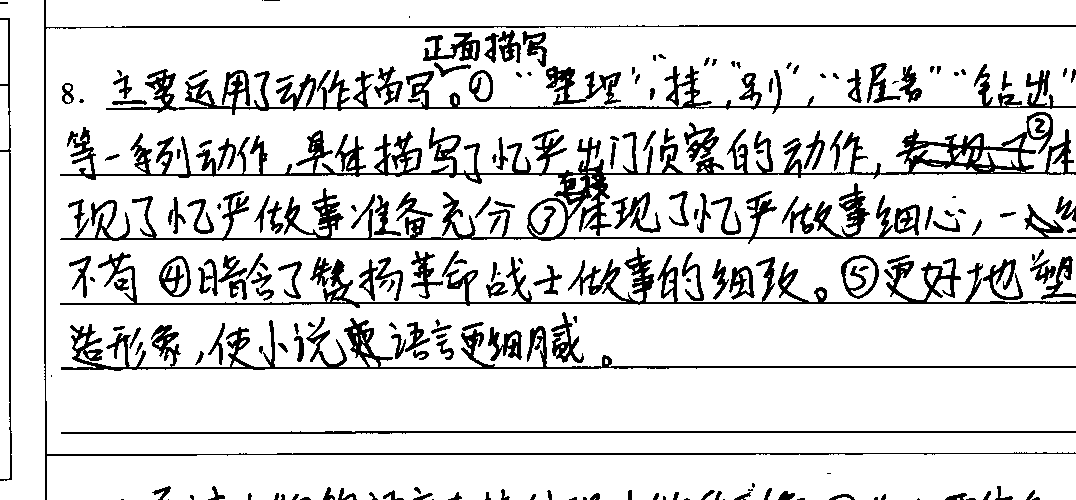 正面描写
8. 主要运用了动作描写。①“整理”,“挂”“别”,“握着”“钻出”
等一系列动作,具体描写了忆严出门侦察的动作,表现了②体
直接
现了忆严做事准备充分③体现了忆严做事细心,一丝
不苟④暗含了赞扬革命战士做事的细致。⑤更好地塑
造形象,使小说语言更细腻。